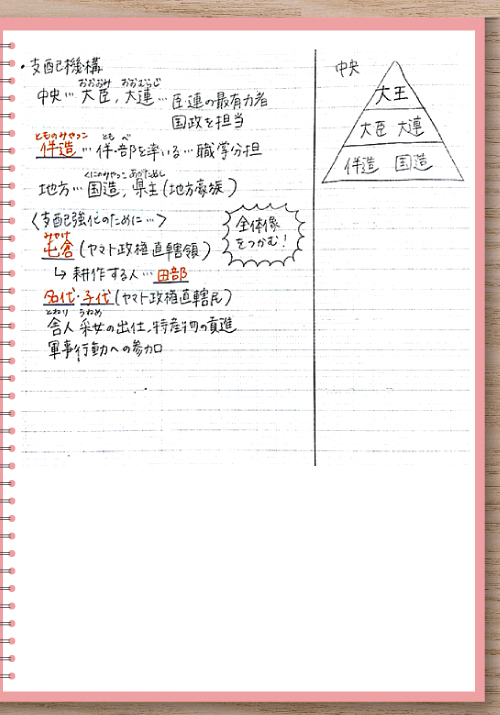 ・支配機構
おおおみ おおむらじ
中央…大臣,大連…臣・連の最有力者
国政を担当
とものみやつこ とも べ
伴造…伴・部を率いる…職掌分担
くにのみやつこ あがたぬし
地方…国造,県主(地方豪族)
〈支配強化のために…〉
みやけ
屯倉(ヤマト政権直轄領)
↳耕作する人…田部
名代・子代(ヤマト政権直轄民)
とねり うねめ
舎人 采女の出仕,特産物の貢進
軍事行動への参加
全体像
をつかむ!
中央
大王
大臣 大連
伴造 国造